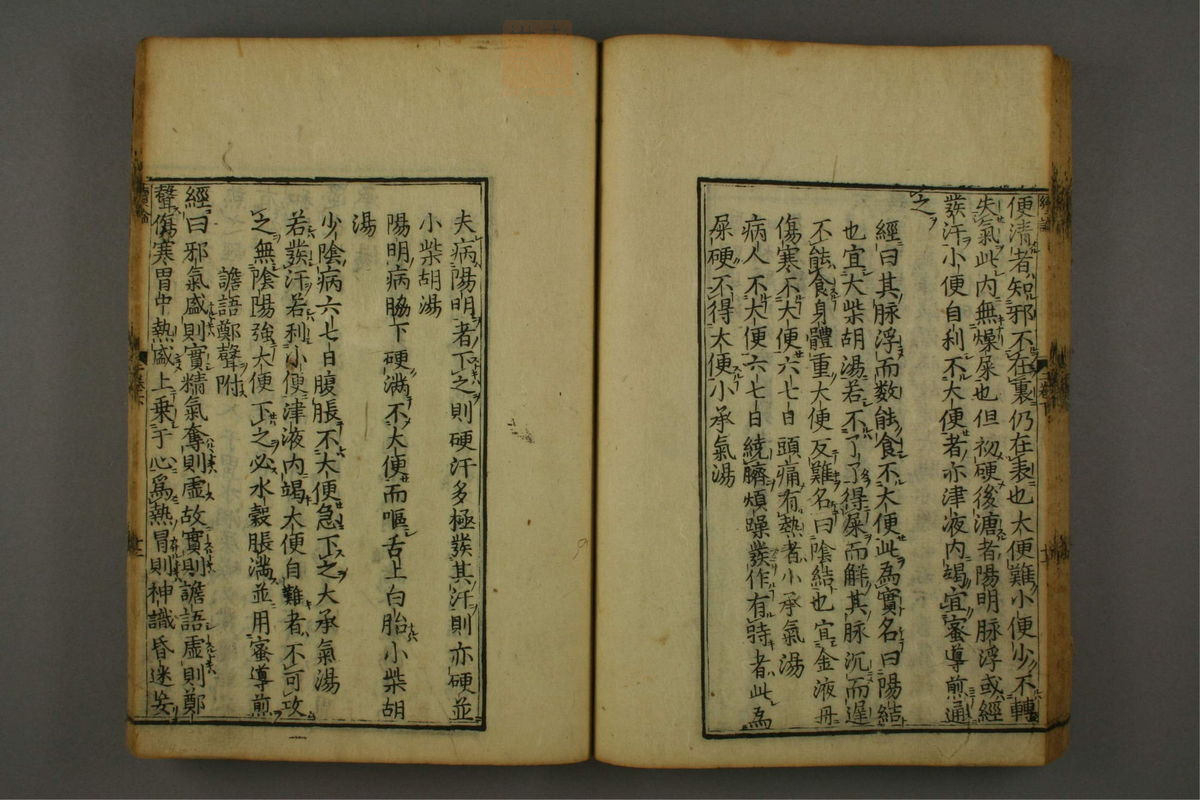 便清者知邪不在裏仍在表也大便難小便少不轉
失氣此内無燥屎也但初硬後溏者陽明脉浮或經
發汗小便自利不大便者亦津液内竭宜蜜導煎通
之
經曰其脉浮而数能食不大便此為實名曰陽結
也宜大柴胡湯若不了了得屎而觧其脉沉而遲
不能食身體重大便反難名曰陰結也宜金液丹
傷寒不大便六七日頭痛有熱者小承氣湯
病人不大便六七日繞臍煩躁發作有時者此為
屎硬不得大便小承氣湯
夫病陽明者下之則硬汗多極發其汗則亦硬並
小柴胡湯
陽明病脇下硬滿不大便而嘔舌上白胎小柴胡
湯
少陰病六七日腹脹不大便急下之大承氣湯
若發汗若利小便津液内竭大便自難者不可攻
之無陰陽強大便下之必水穀脹滿並用蜜導煎
譫語鄭聲附
經曰邪氣盛則實精氣奪則虛故實則譫語虛則鄭
聲傷寒胃中熱盛上乗于心為熱冒則神識昏迷妄